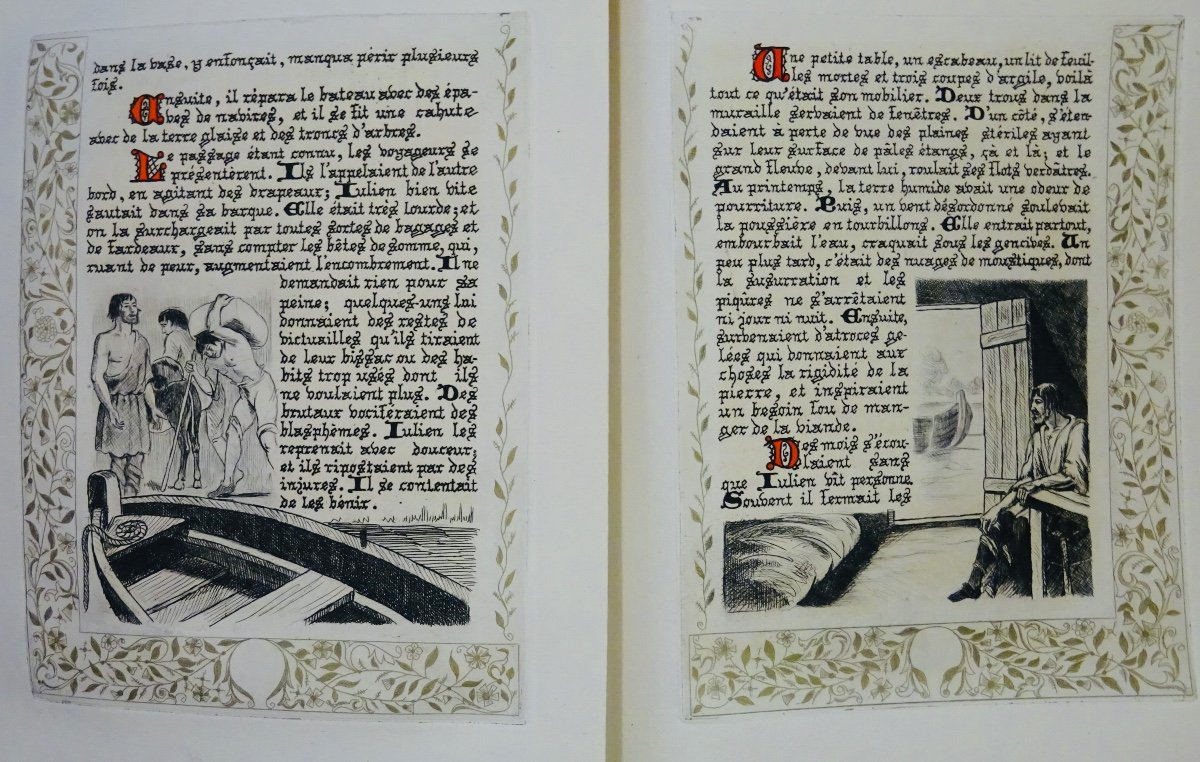 dans la vase, y enfonçait, manqua périr plusieurs
fois.
Ensuite, il répara le bateau avec des épa-
ves de navires, et il se fit une cahute
avec de la terre glaise et des troncs d'arbres.
Le passage étant connu, les voyageurs se
présentèrent. Ils l'appelaient de l'autre
bord, en agitant des drapeaux; Iulien bien vite
sautait dans sa barque. Elle était très lourde; et
on la surchargeait par toutes sortes de bagages et
de fardeaux, sans compter les bêtes de somme, qui,
ruant de peur, augmentaient l'encombrement. Il ne
demandait rien pour sa
peine; quelques-uns lui
donnaient des restes de
victuailles qu'ils tiraient
de leur bissac ou des ha-
bits trop usés dont ils
ne voulaient plus. Des
brutaux vociféraient des
blasphèmes. Iulien les
reprenait avec douceur;
et ils ripostaient par des
injures. Il se contentait
de les bénir.
Une petite table, un escabeau, un lit de feuil-
les mortes et trois coupes d'argile, voilà
tout ce qu'était son mobilier. Deux trous dans la
muraille servaient de fenêtres. D'un côté, s'éten-
daient à perte de vue des plaines stériles ayant
sur leur surface de pâles étangs, çà et là; et le
grand fleuve, devant lui, roulait ses flots verdâtres.
Au printemps, la terre humide avait une odeur de
pourriture. Puis, un vent désordonné soulevait
la poussière en tourbillons. Elle entrait partout,
embourbait l'eau, craquait sous les gencives. Un
peu plus tard, c'était des nuages de moustiques, dont
la susurration et les
piqûres ne s'arrêtaient
ni jour ni nuit. Ensuite,
survenaient d'atroces ge-
lées qui donnaient aux
choses la rigidité de la
pierre, et inspiraient
un besoin fou de man-
ger de la viande.
Des mois s'écou-
laient sans
que Iulien vît personne.
Souvent il fermait les